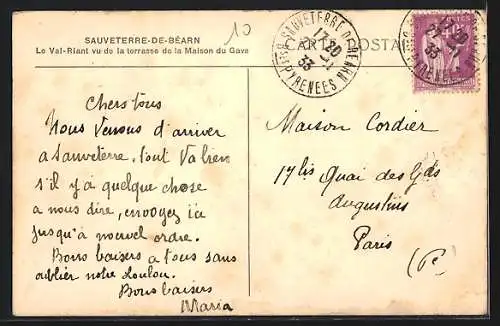 SAUVETERRE-DE-BÉARN
Le Val-Riant vu de la terrasse de la Maison du Gave
10
CARTE POSTALE
SAUVETERRE DE BEARN
17 20
33
PYRENEES
Chers tous
Nous venons d'arriver
a sauveterre, tout va bien
s'il y a quelque chose
a nous dire, envoyez ici
jusqu'à nouvel ordre.
Bons baisers a tous sans
oublier notre loulou.
Bons baisers
Maria
Maison Cordier
17bis Quai des Gds
Augustins
Paris